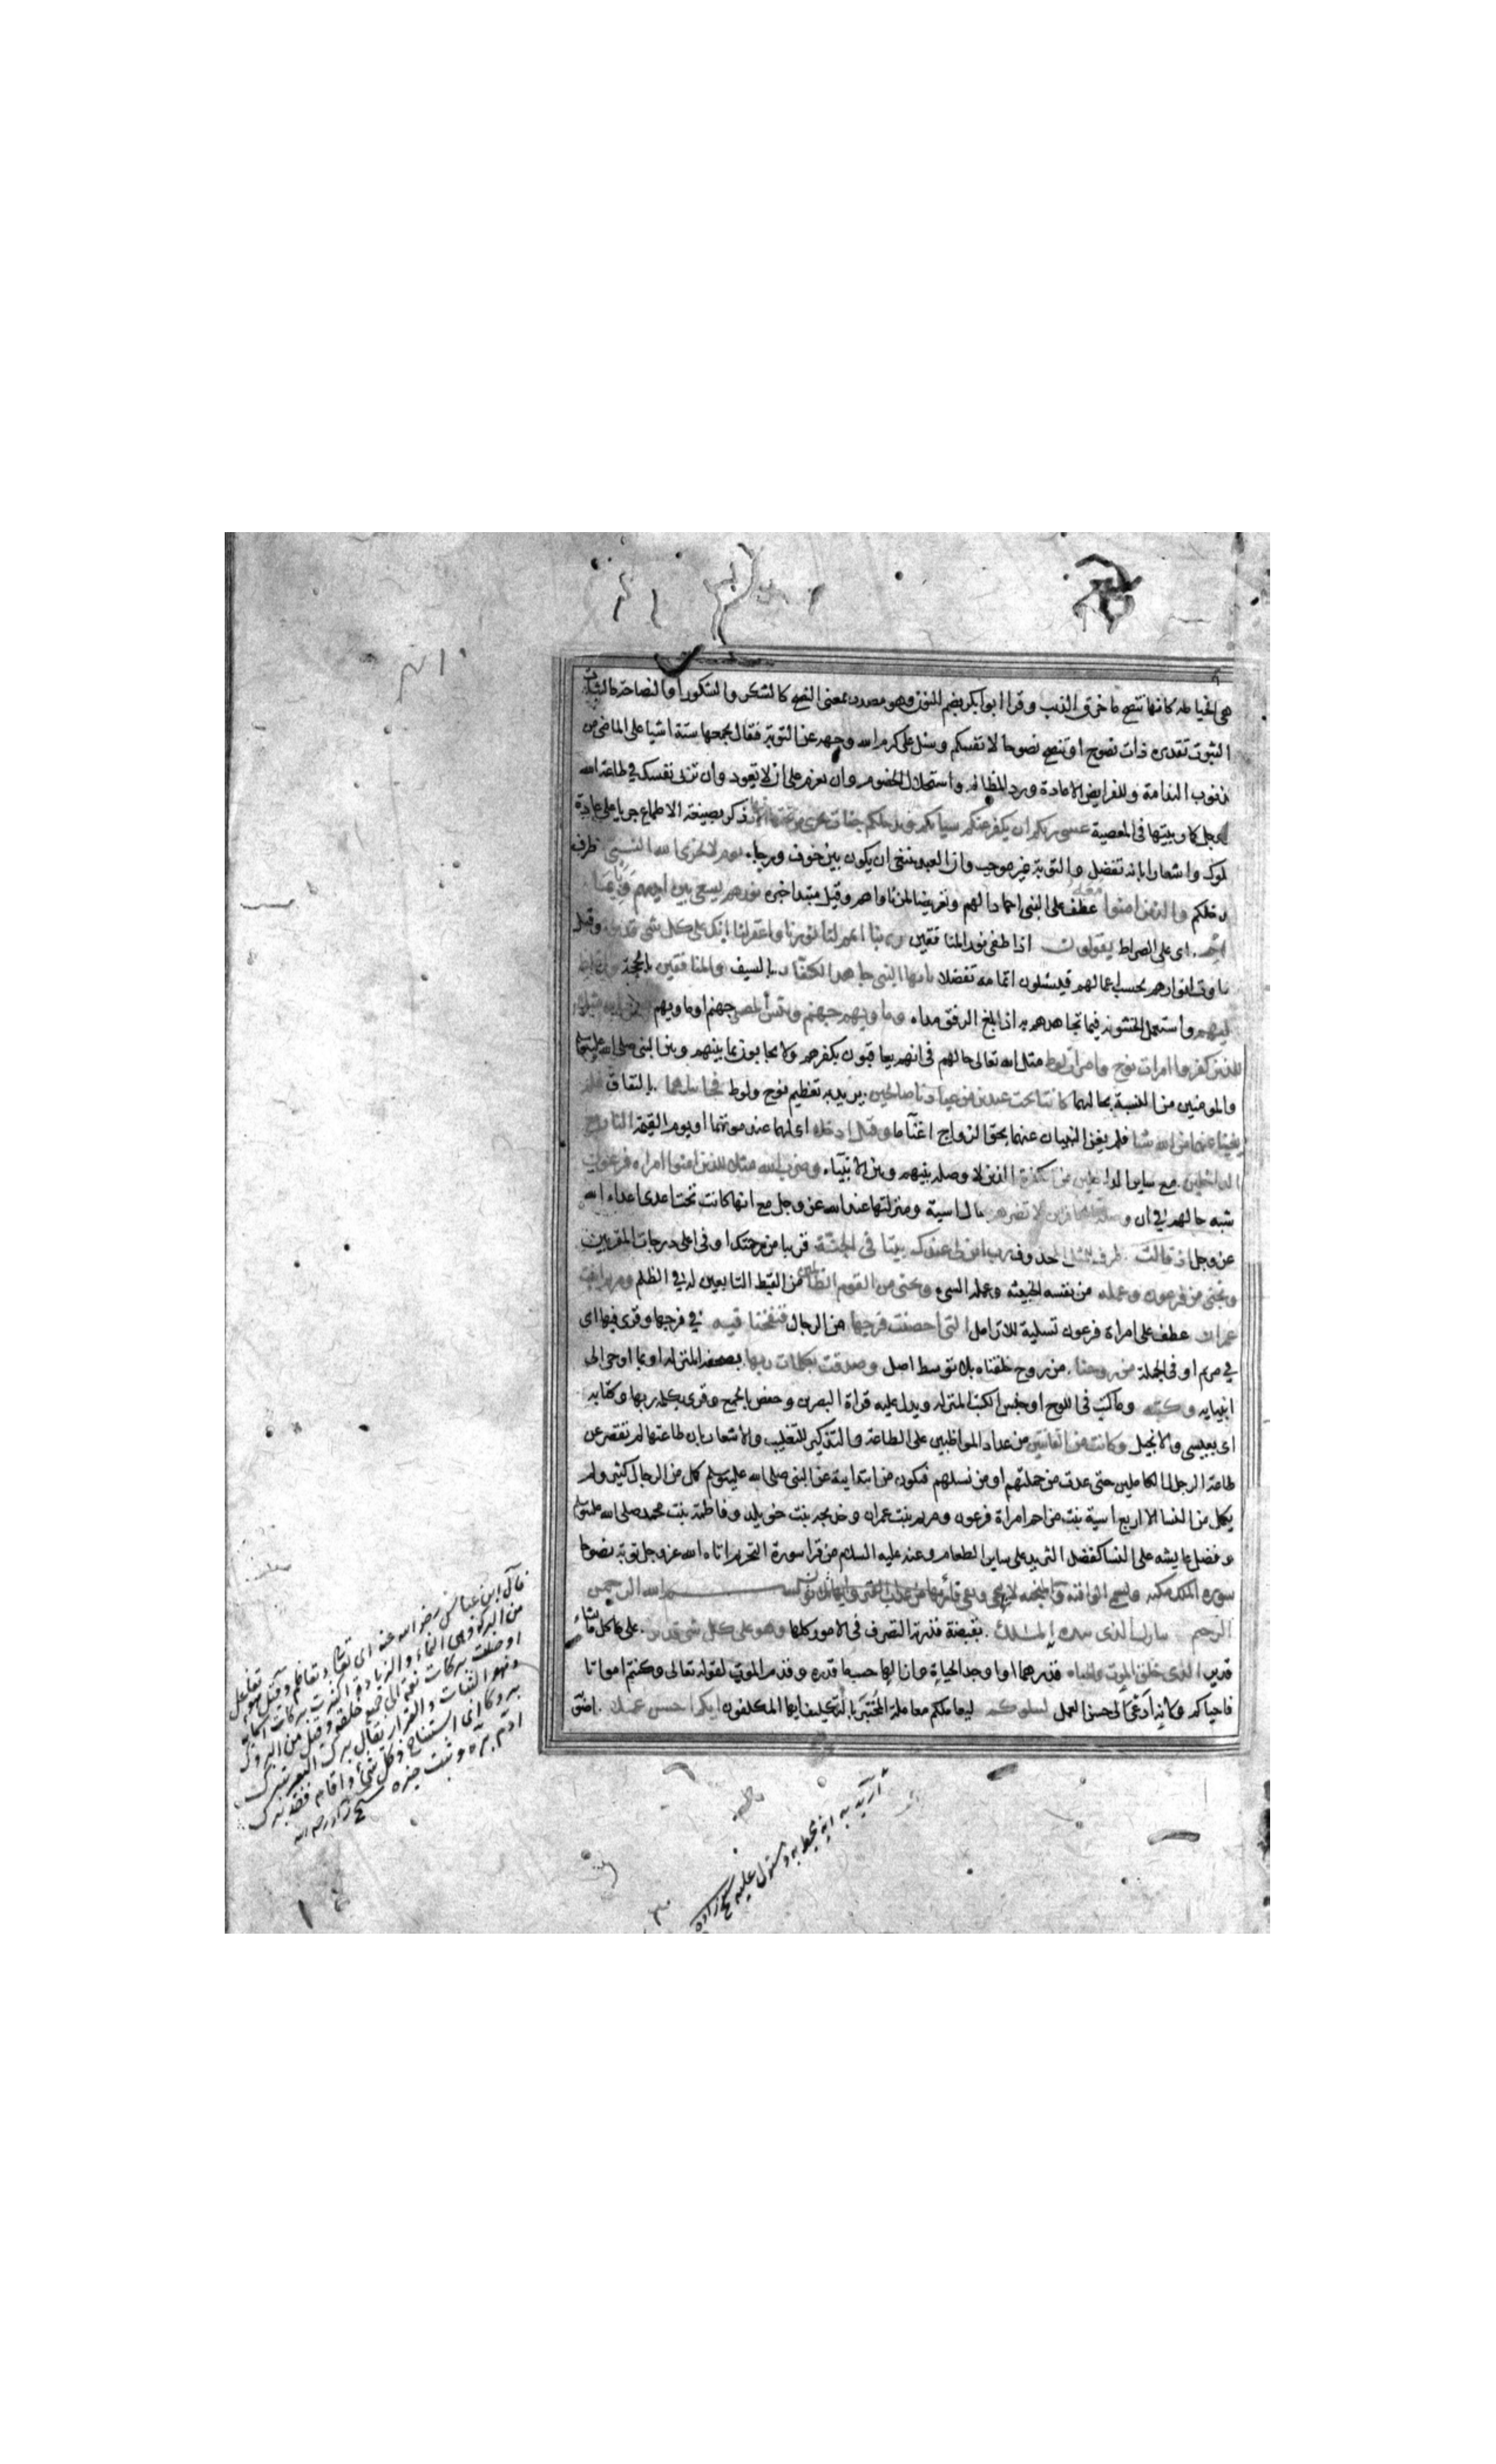 هى الخياطه كانها تنصح ما خرق الذنب وقرا ابو بكر بضم النون وهو مصدر بمعنى النصح كالشكر والشكور او النصاحة كالثبات
الثبوت تقديره ذات نصوح او تنصح نصوحا لانفسكم وسئل على كرم الله وجهه عن التوبة فقال يجمعها ستة اشيا على الماضى من
ذنوب الندامة وللفرايض الاعادة ورد المظالم واستحلال الخصوم وان تعزم على ان لا تعود وان تربى نفسك فى طاعة الله
كما ربيتها فى المعصية عسى ربكم ان يكفر عنكم سياتكم ويدخلكم جنات تجرى من تحتها ذكر بصيغة الاطماع جريا على عادة
لموك واشعارا بانه تفضل والتوبة غير موجب وان العبد ينبغى ان يكون بين خوف ورجاء يوم لا يخزى الله النبى ظرف
دخلكم والذين امنوا معه عطف على النبى احمادا لهم وتعريضا لمن ناواهم وقيل مبتدا خبره نورهم يسعى بين ايديهم وبايمانهم
اى على الصراط يقولون اذا طفى نور المنافقين ربنا اتمم لنا نورنا واغفر لنا انك على كل شى قدير وقيل
تفاوت انوارهم بحسب اعمالهم فيسئلون اتمامه تفضلا يا ايها النبى جاهد الكفار بالسيف والمنافقين بالحجة واغلظ
عليهم واستعمل الخشونة فيما تجاهدهم به اذا بلغ الرفق مداه وماويهم جهنم وبئس المصير جهنم او ماويهم ضرب الله مثلا
للذين كفروا امرات نوح وامرات لوط مثل الله تعالى حالهم فى انهم يعاقبون بكفرهم ولا يحابون بما بينهم وبين النبى صلى الله عليه وسلم
والمومنين من النسبة بحالهما كانتا تحت عبدين من عبادنا صالحين يريد به تعظيم نوح ولوط فخانتاهما بالنفاق فلم
يغنيا عنهما من الله شيا فلم يغن النبيان عنهما بحق الزواج اغنا ما وقيل ادخلا اى لهما عند موتهما او يوم القيمة النار مع
الداخلين مع ساير الداخلين من الكفرة الذين لا وصلة بينهم وبين الانبياء وضرب الله مثلا للذين امنوا امراة فرعون
شبه حالهم فى ان وصلة الكافرين لا تضرهم بحال اسية ومنزلتها عند الله عز وجل مع انها كانت تحت اعدى اعداء الله
عز وجل اذ قالت ظرف للمثل المحذوف رب ابن لى عندك بيتا فى الجنة قريبا من رحمتك او فى اعلى درجات المقربين
ونجنى من فرعون وعمله من نفسه الخبيثه وعمله السىء ونجنى من القوم الظالمين من القبط التابعين له فى الظلم ومريم ابنت
عمران عطف على امراة فرعون تسلية للارامل التى احصنت فرجها من الرجال فنفخنا فيه فى فرجها وقرى فيها اى
فى مريم او فى الجملة من روحنا من روح خلقناه بلا توسط اصل وصدقت بكلمات ربها بصحفه المنزله او بما اوحى الى
انبيايه وكتبه وما كتب فى اللوح او جنس الكتب المنزله ويدل عليه قراة البصرين وحفص بالجمع وقرى بكلمة ربها وكتابه
اى بعيسى والانجيل وكانت من القانتين من عداد المواظبين على الطاعة والتذكير للتغليب والاشعار بان طاعتها لم تقصر عن
طاعة الرجال الكاملين حتى عدت من جملتهم او من نسلهم فتكون من ابتدايية عن النبى صلى الله عليه وسلم كمل من الرجال كثير ولم
يكمل من النسا الا اربع اسية بنت مزاحم امراة فرعون ومريم بنت عمران وخديجة بنت خويلد وفاطمة بنت محمد صلى الله عليه وسلم
وفضل عايشه على النسا كفضل الثريد على ساير الطعام وعنه عليه السلام من قرا سورة التحريم اتاه الله عز وجل توبة نصوحا
سورة الملك مكية وتسمى الواقية والمنجيه لانها تنجى وتقى قارئها من عذاب القبر وايها ثلاثون بسم الله الرحمن
الرحيم تبارك الذى بيده الملك بقبضة قدرته التصرف فى الامور كلها وهو على كل شى قدير على كل ما يشاء
قدير الذى خلق الموت والحياه قدرهما او اوجد الحياة وازالها حسبما قدره وقدم الموت لقوله تعالى وكنتم امواتا
فاحياكم ولانه ادعى الى حسن العمل ليبلوكم ليعاملكم معاملة المختبر بالتكليف ايها المكلفون ايكم احسن عملا
قال ابن عباس رضى الله عنه اى تعالى وتعاظم وقيل هو تفاعل
من البركة وهى النماء والزيادة اى كثرت بركات اسمايه
او وصلت بركات نعمه الى جميع خلقه وقيل من البروك
وهو الثبات والقرار يقال برك البعير يبرك
بروكا اى استناخ وكل شئ ثبت واقام فقد برك
شيخ زاده رحمه الله